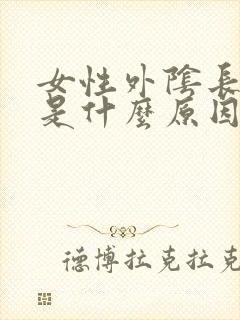 女性外陰長
是什麼原因
德博拉克拉克